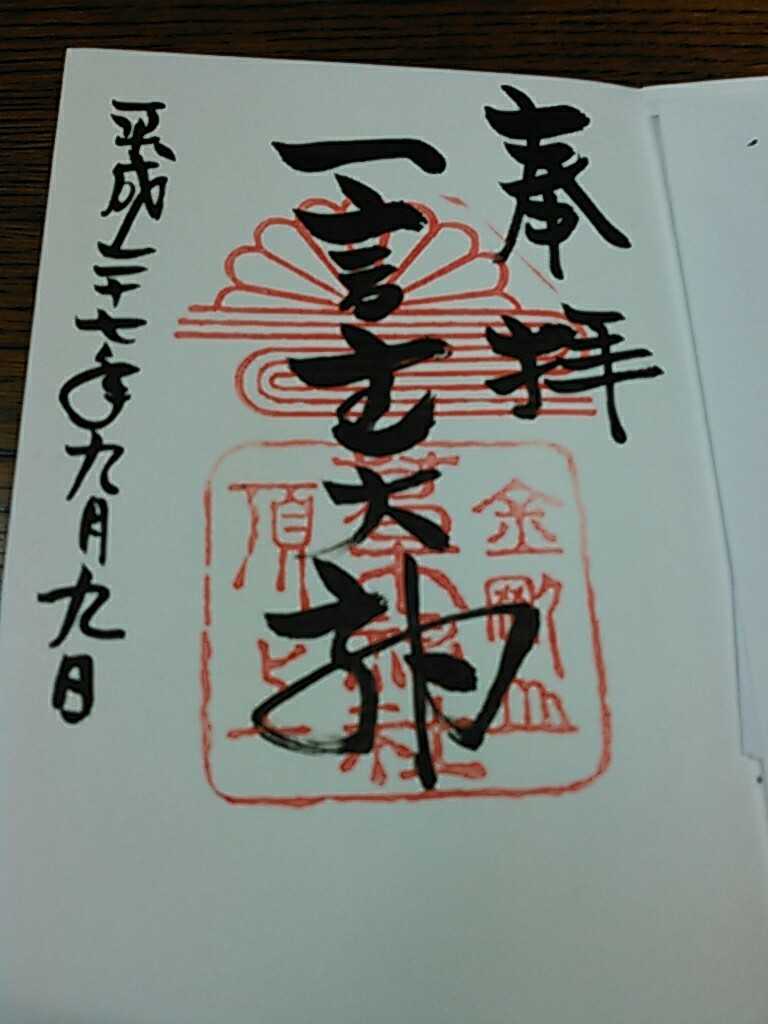 奉拝
一言主大神
平成二十七年九月九日
金剛山
葛木神社
頂上